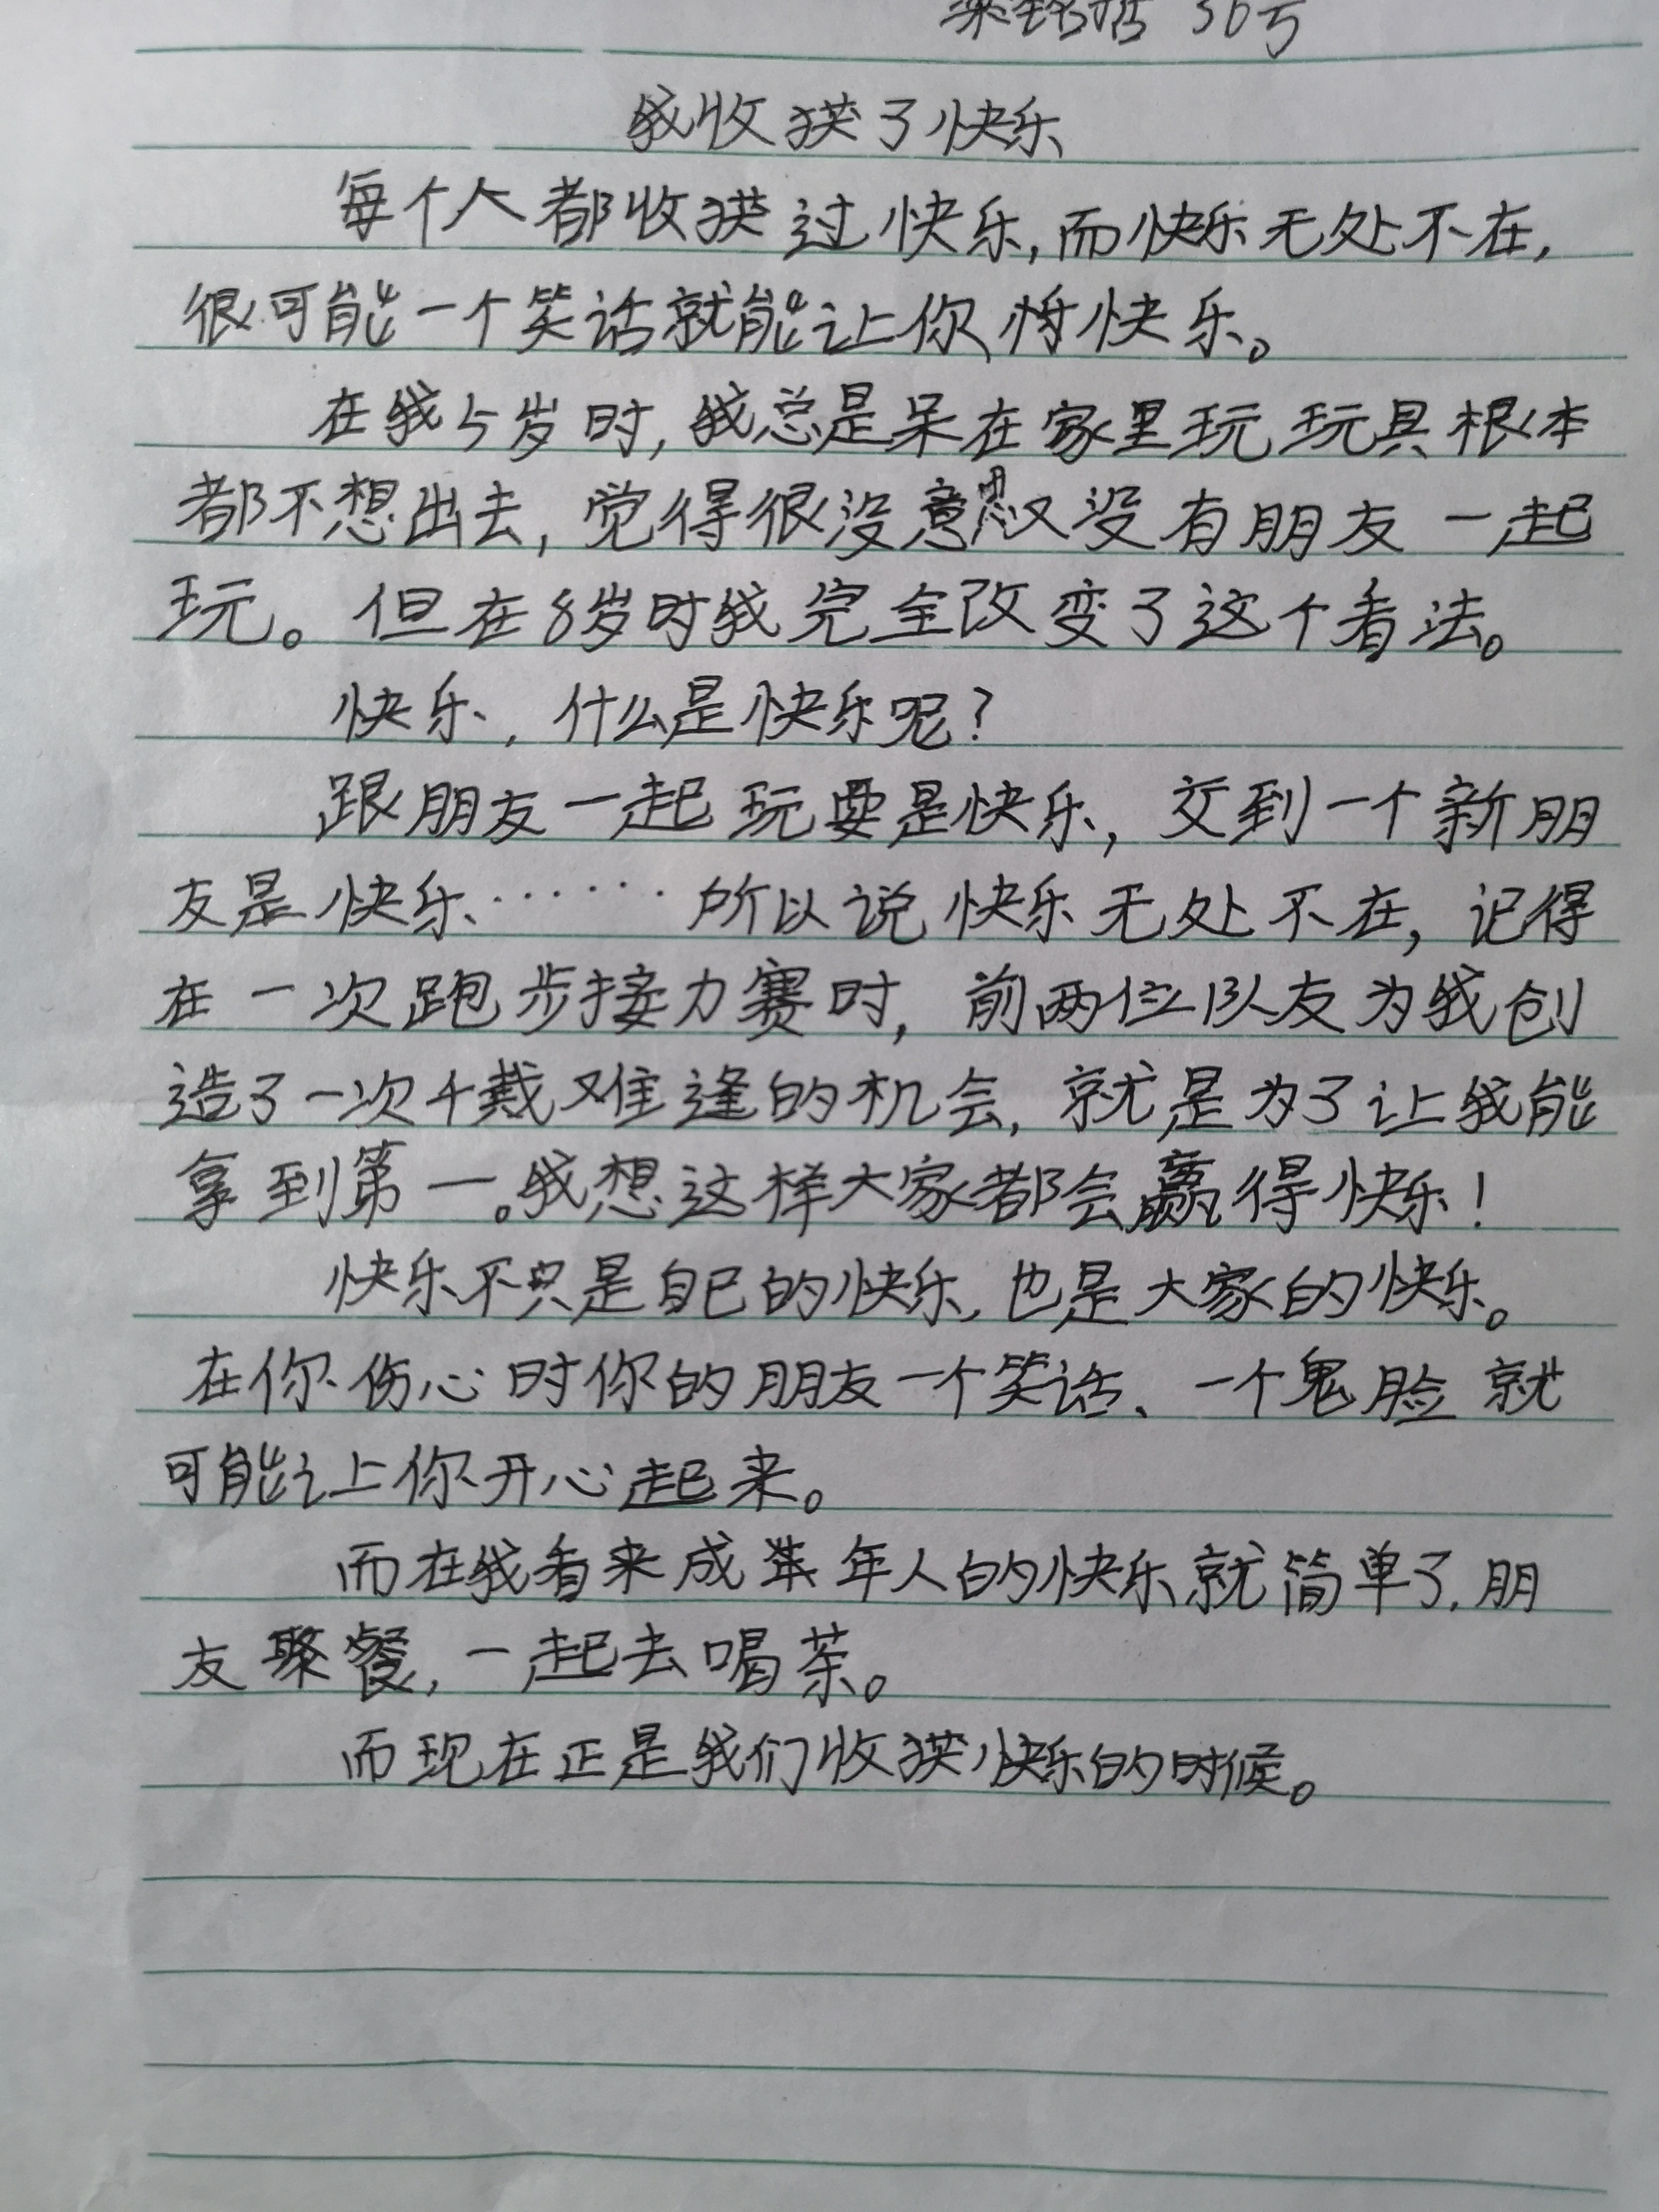 30号
我收获了快乐
每个人都收获过快乐,而快乐无处不在,
很可能一个笑话就能让你快乐。
在我5岁时,我总是呆在家里玩玩具根本
都不想出去,觉得很没意思又没有朋友一起
玩。但在8岁时我完全改变了这个看法。
快乐,什么是快乐呢?
跟朋友一起玩耍是快乐,交到一个新朋
友是快乐……所以说快乐无处不在,记得
在一次跑步接力赛时,前两位队友为我创
造了一次千戴难逢的机会,就是为了让我能
拿到第一。我想这样大家都会赢得快乐!
快乐不只是自己的快乐,也是大家的快乐。
在你伤心时你的朋友一个笑话、一个鬼脸就
可能让你开心起来。
而在我看来成年人的快乐就简单了,朋
友聚餐,一起去喝茶。
而现在正是我们收获快乐的时候。